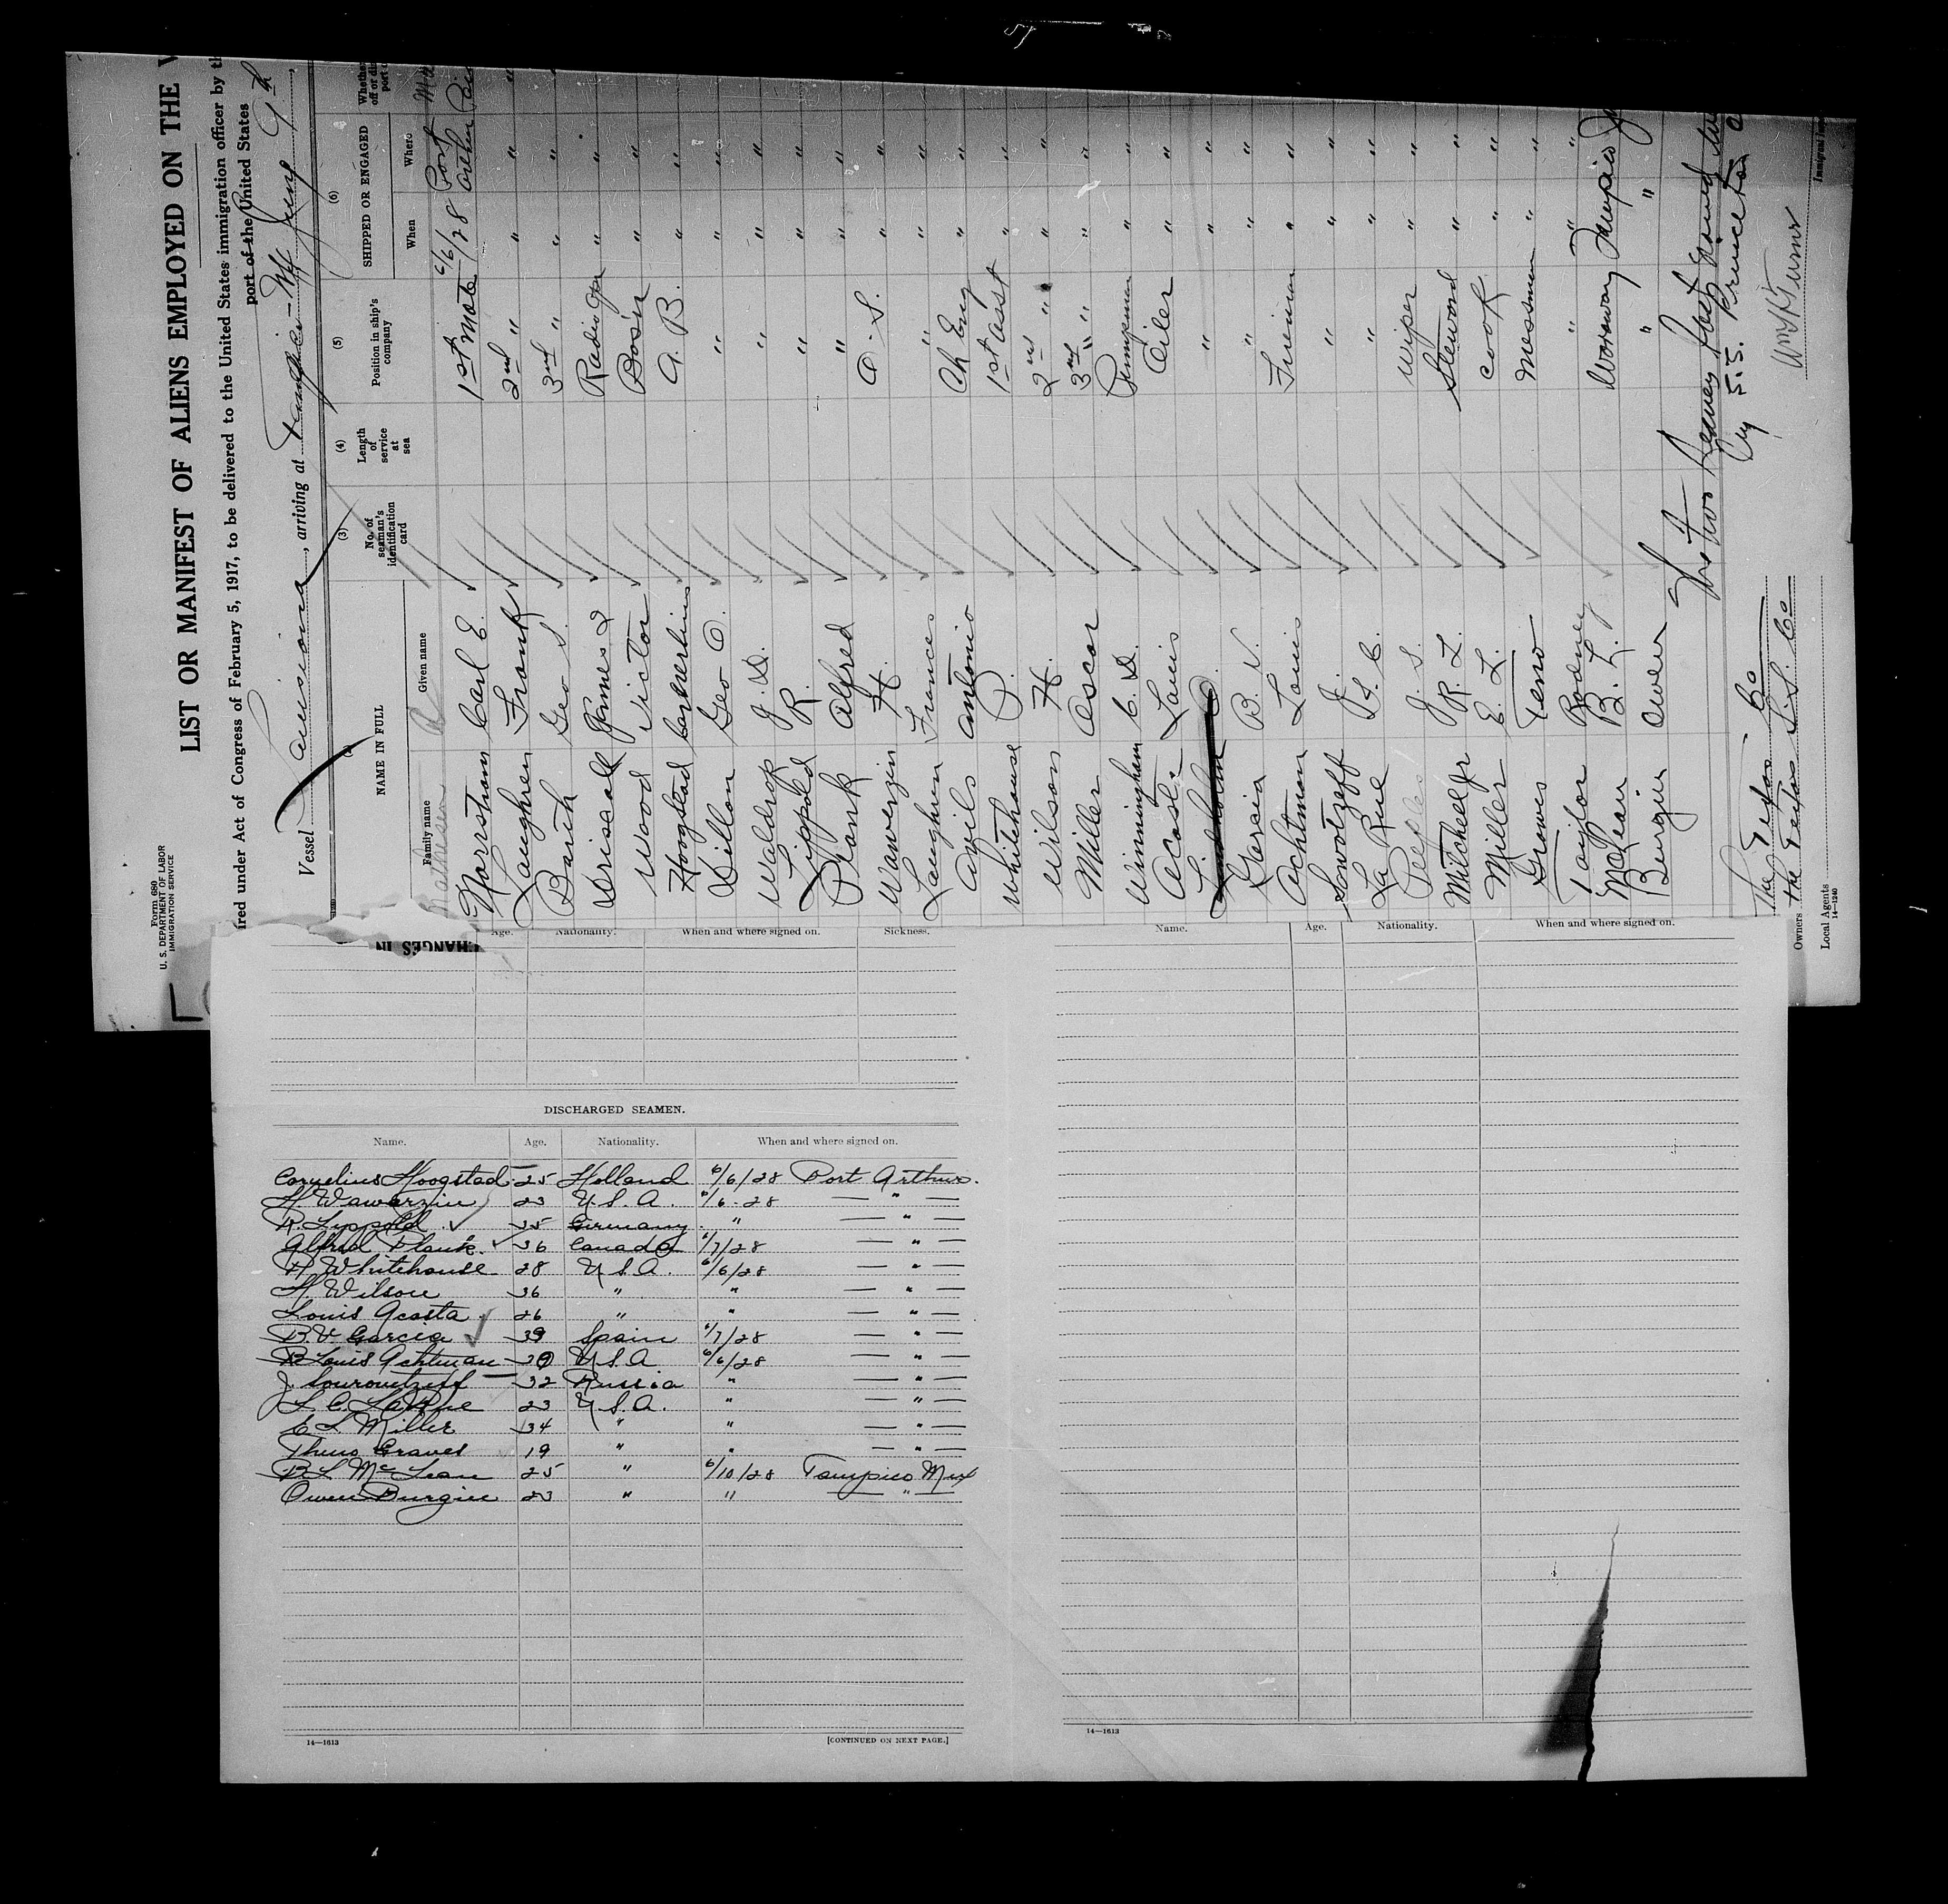 Form 680
U. S. DEPARTMENT OF LABOR
IMMIGRATION SERVICE
LIST OR MANIFEST OF ALIENS EMPLOYED ON THE
ired under Act of Congress of February 5, 1917, to be delivered to the United States immigration officer by th
port of the United States
Vessel Louisiana, arriving at Tampico - Mx June 9th
(3) (4) (5) (6)
NAME IN FULL No. of seaman's identification card Length of service at sea Position in ship's company SHIPPED OR ENGAGED
Family name Given name When Where
Mathiesen
Norrstrom Carl E. 1st Mate 6/6/28 Port Arthur
Laughren Frank 2nd " " "
Barth Geo S. 3rd " " "
Driscoll James L Radio Opr " "
Wood Victor Bos'n " "
Hoogstad Cornelius A. B. " "
Dillon Geo O. " " "
Waldrop J. D. " " "
Lippold R. " " "
Plank Alfred " " "
Wawerzin H. O. S. " "
Laughren Frances " " "
Avils Antonio Ch Eng " "
Whitehouse P. 1st Asst " "
Wilson H. 2nd " " "
Miller Oscar 3rd " " "
Winningham C. D. Pumpman " "
Acosta Louis Oiler " "
Lindholm O. " " "
Garcia B. V. " " "
Achtman Louis Fireman " "
Sowotzeff J. " " "
La Rue L. C. " " "
Peeples J. S. Wiper " "
Mitchell Jr R. L. Steward " "
Miller E. L. Cook " "
Graves Teno Messman " "
Taylor Rodney " " "
McLean B. L. Workaway Tampico
Burgin Owen " "
by S.S. Princeton
The Texas Co
Owners The Texas S.S. Co
Local Agents
14-1240
CHANGES IN
Age. Nationality. When and where signed on. Sickness. Name. Age. Nationality. When and where signed on.
DISCHARGED SEAMEN.
Name. Age. Nationality. When and where signed on.
Cornelius Hoogstad 25 Holland 6/6/28 Port Arthur.
H. Wawerzin 23 U.S.A. 6/6-28 — " —
R. Lippold 35 Germany " — " —
Alfred Plank 36 Canada 6/7/28 — " —
P. Whitehouse 28 U.S.A. 6/6/28 — " —
H. Wilson 36 " " — " —
Louis Acosta 26 " " — " —
B.V. Garcia 39 Spain 6/7/28 — " —
Louis Achtman 30 U.S.A 6/6/28 — " —
J. Sourowitzeff 32 Russia " — " —
L. C. LaRue 23 U.S.A. " — " —
E L Miller 34 " " — " —
Theno Graves 19 " " — " —
B.L. McLean 25 " 6/10/28 Tampico Mex
Owen Burgin 23 " " — " —
14—1613 [CONTINUED ON NEXT PAGE.] 14—1613